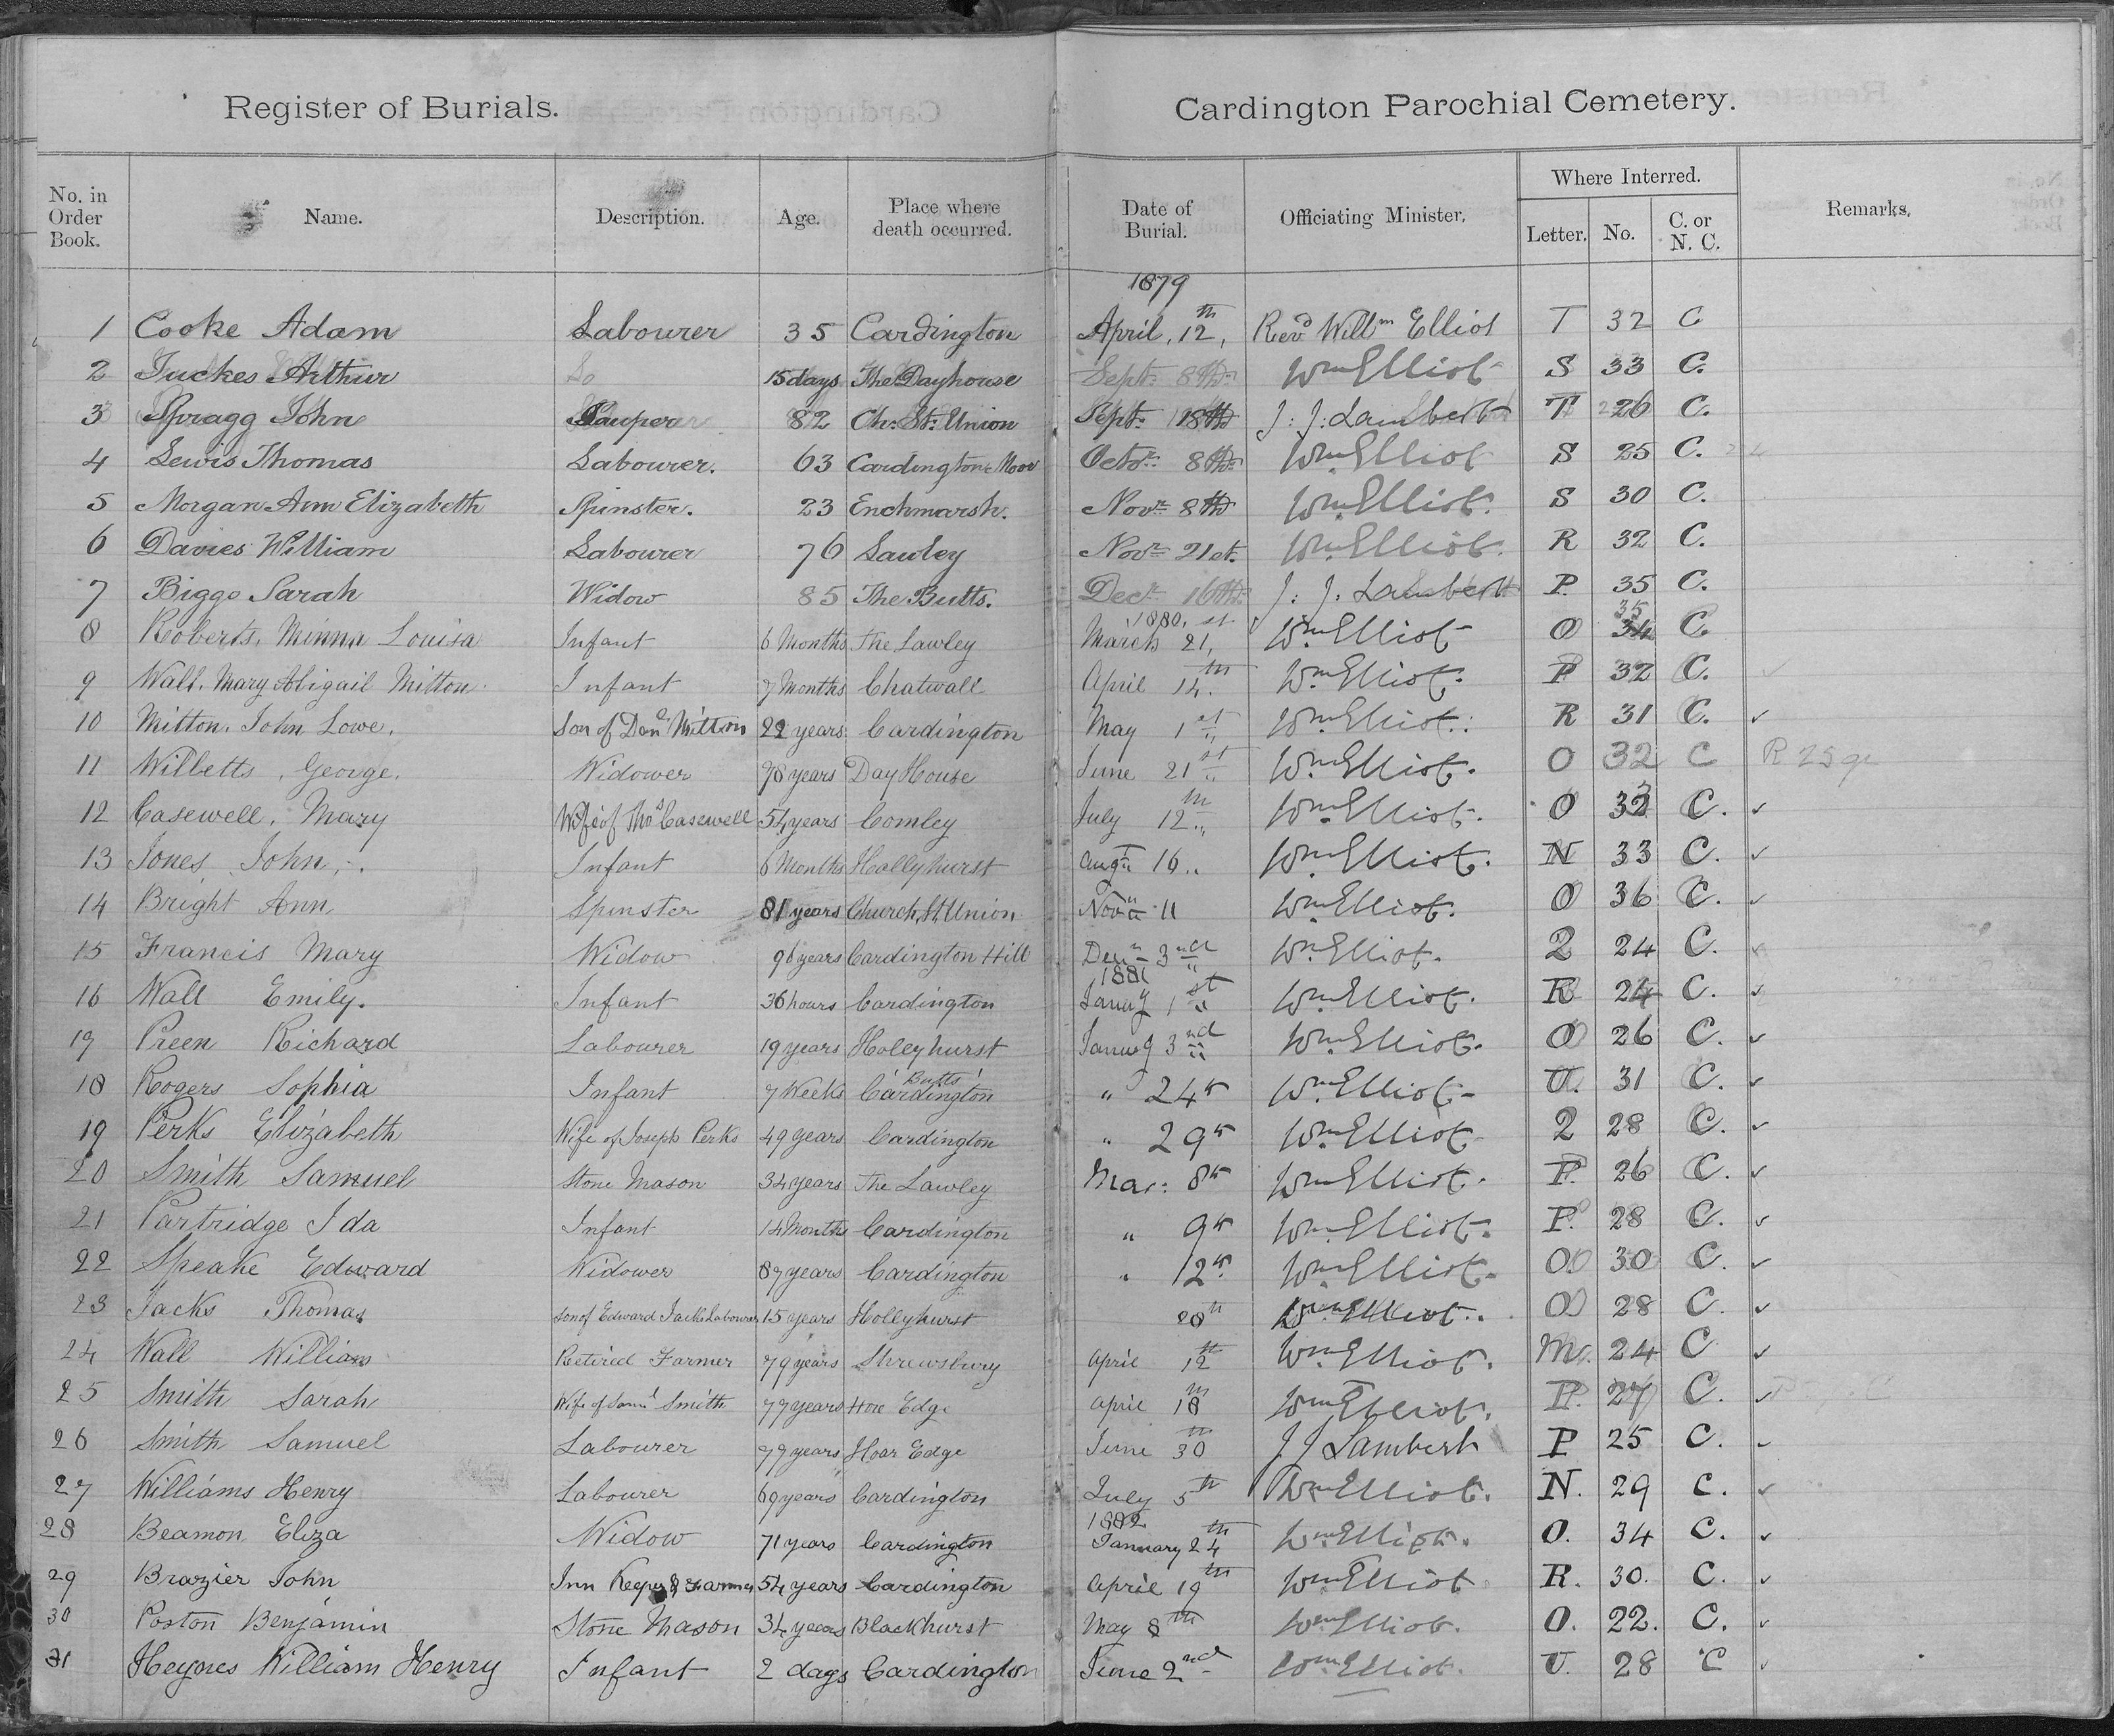 Register of Burials.
Cardington Parochial Cemetery.
No. in Order Book. Name. Description. Age. Place where death occurred. Date of Burial. Officiating Minister. Where Interred. Letter. No. C. or N. C. Remarks.
1879
1 Cooke Adam Labourer 35 Cardington April, 12th, Revd Willm Elliot T 32 C
2 Tuckes Arthur 15 days The Dayhouse Sept: 8th Wm Elliot S 33 C.
3 Spragg John Pauper 82 Ch: St: Union Sept: 18th J: J: Lambert T 26 C.
4 Lewis Thomas Labourer. 63 Cardington Moor Octor 8th Wm Elliot S 25 C.
5 Morgan Ann Elizabeth Spinster. 23 Enchmarsh. Novr 8th Wm Elliot. S 30 C.
6 Davies William Labourer 76 Lawley Novr 21st. Wm Elliot. R 32 C.
7 Biggs Sarah Widow 85 The Butts. Decr 16th J: J: Lambert P. 35 C.
1880.
8 Roberts, Minna Louisa Infant 6 Months The Lawley March 21st, Wm Elliot O 34 35 C.
9 Wall. Mary Abigail Mitton Infant 7 Months Chatwall April 14th. Wm Elliot. P 32 C.
10 Mitton. John Lowe. Son of Danl Mitton 22 years Cardington May 1st Wm Elliot. R 31 C. ✓
11 Willetts, George. Widower 78 years Day House June 21st Wm Elliot. O 32 C R 25
12 Casewell, Mary Wife of Thos Casewell 54 years Comley July 12th Wm Elliot. O 33 C. ✓
13 Jones John, Infant 6 Months Hollyhurst Augt 16 Wm Elliot. N 33 C. ✓
14 Bright Ann Spinster 81 years Church St. Union Nov 11 Wm Elliot. O 36 C. ✓
15 Francis Mary Widow 96 years Cardington Hill Decr 3rd Wm Elliot. Q 24 C. ✓
1881
16 Wall Emily. Infant 36 hours Cardington Januy 1st Wm Elliot. R 24 C. ✓
17 Preen Richard Labourer 19 years Holeyhurst Januy 3rd Wm Elliot. O 26 C. ✓
18 Rogers Sophia Infant 7 Weeks Butts Cardington " 24th Wm Elliot. U. 31 C. ✓
19 Perks Elizabeth Wife of Joseph Perks 49 years Cardington " 29th Wm Elliot. Q 28 C. ✓
20 Smith Samuel Stone Mason 34 years The Lawley Mar: 8th Wm Elliot. P. 26 C. ✓
21 Partridge Ida Infant 14 Months Cardington " 9th Wm Elliot. P. 28 C. ✓
22 Speake Edward Widower 87 years Cardington " 12th Wm Elliot. O 30 C. ✓
23 Jacks Thomas son of Edward Jacks Labourer 15 years Hollyhurst 28th Wm Elliot. O 28 C. ✓
24 Wall William Retired Farmer 79 years Shrewsbury April 12th Wm Elliot. M. 24 C ✓
25 Smith Sarah Wife of Saml Smith 77 years Hoar Edge April 18th Wm Elliot. P. 27 C. ✓
26 Smith Samuel Labourer 77 years Hoar Edge June 30th J J Lambert P 25 C. ✓
27 Williams Henry Labourer 69 years Cardington July 5th Wm Elliot. N. 29 C. ✓
1882
28 Beamon Eliza Widow 71 years Cardington January 24th Wm Elliot. O. 34 C. ✓
29 Brazier John Inn Keeper & Farmer 54 years Cardington April 19th Wm Elliot R. 30. C. ✓
30 Poston Benjamin Stone Mason 34 years Blackhurst May 8th Wm Elliot. O. 22. C. ✓
31 Heynes William Henry Infant 2 days Cardington June 2nd Wm Elliot. U. 28 C ✓